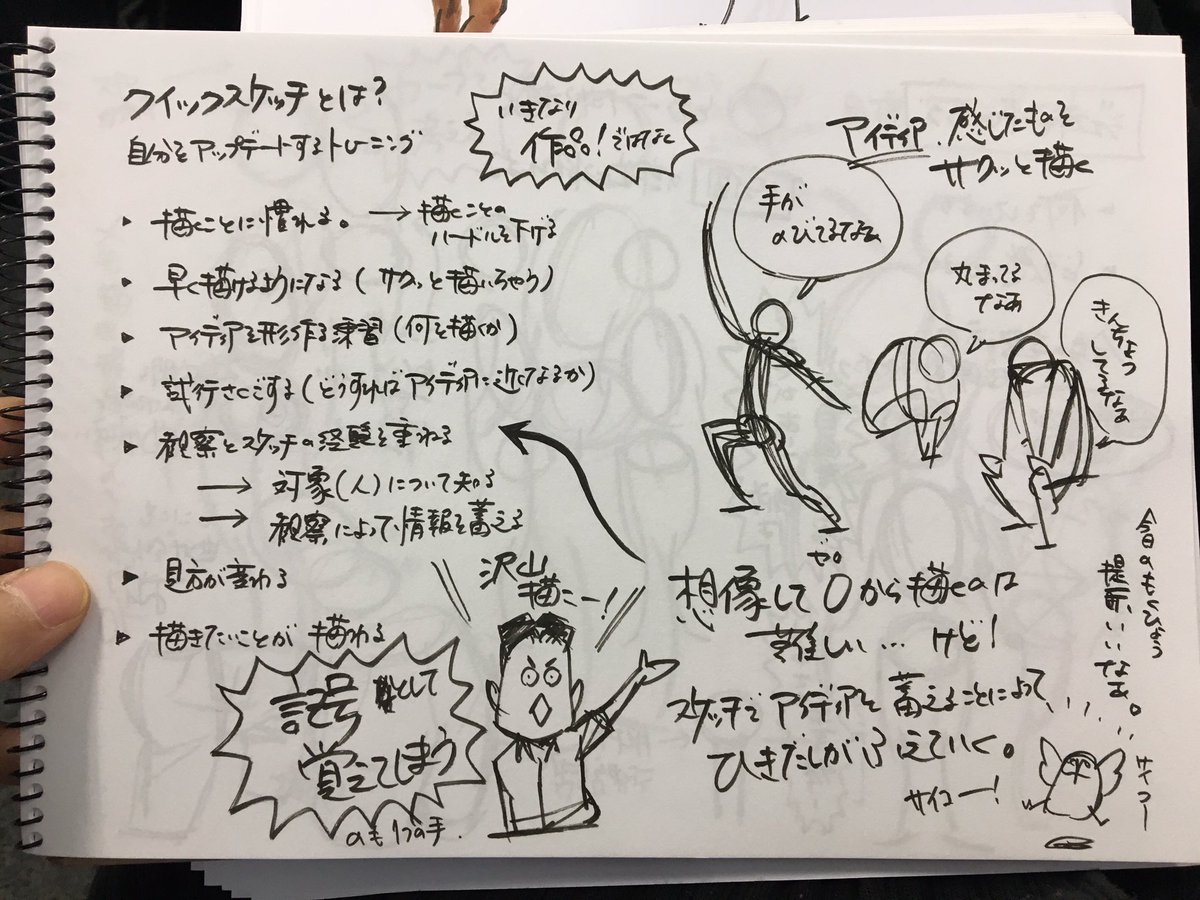 クイックスケッチとは?
自分をアップデートするトレーニング
いきなり
作品!ではなく
アイディア、感じたものを
サクッと描く
▶ 描くことに慣れる。 → 描くことの
ハードルを下げる
▶ 早く描けるようになる(サクッと描いちゃう)
▶ アイデアを形作る練習(何を描くか)
▶ 試行さくごする(どうすればアイディアに近くなるか)
▶ 観察とスケッチの経験を重ねる
→ 対象(人)について知る
→ 観察によって情報を蓄える
▶ 見方が変わる
▶ 描きたいことが描ける
手が
のびてるなぁ
丸まってる
なぁ
きんちょう
してるなぁ
沢山
描こー!
記号として
覚えてしまう
のも1つの手.
ゼロ
想像して0から描くのは
難しい…けど!
スケッチでアイディアを蓄えることによって
ひきだしが増えていく。
サイコー!
今日のもくひょう
提示いいなぁ。
サイコー